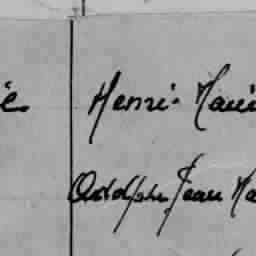 e. Henri. Mari
Adolphe Jean Ma